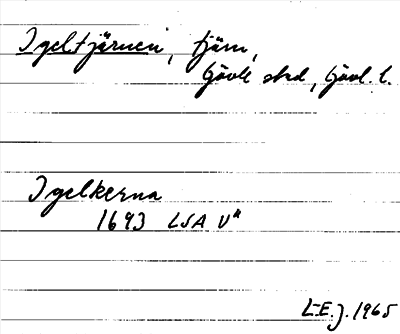 Igeltjärnen, tjärn,
Gävle stad, Gävl. l.
Igelkerna
1693 LSA V"
L-E.J. 1965